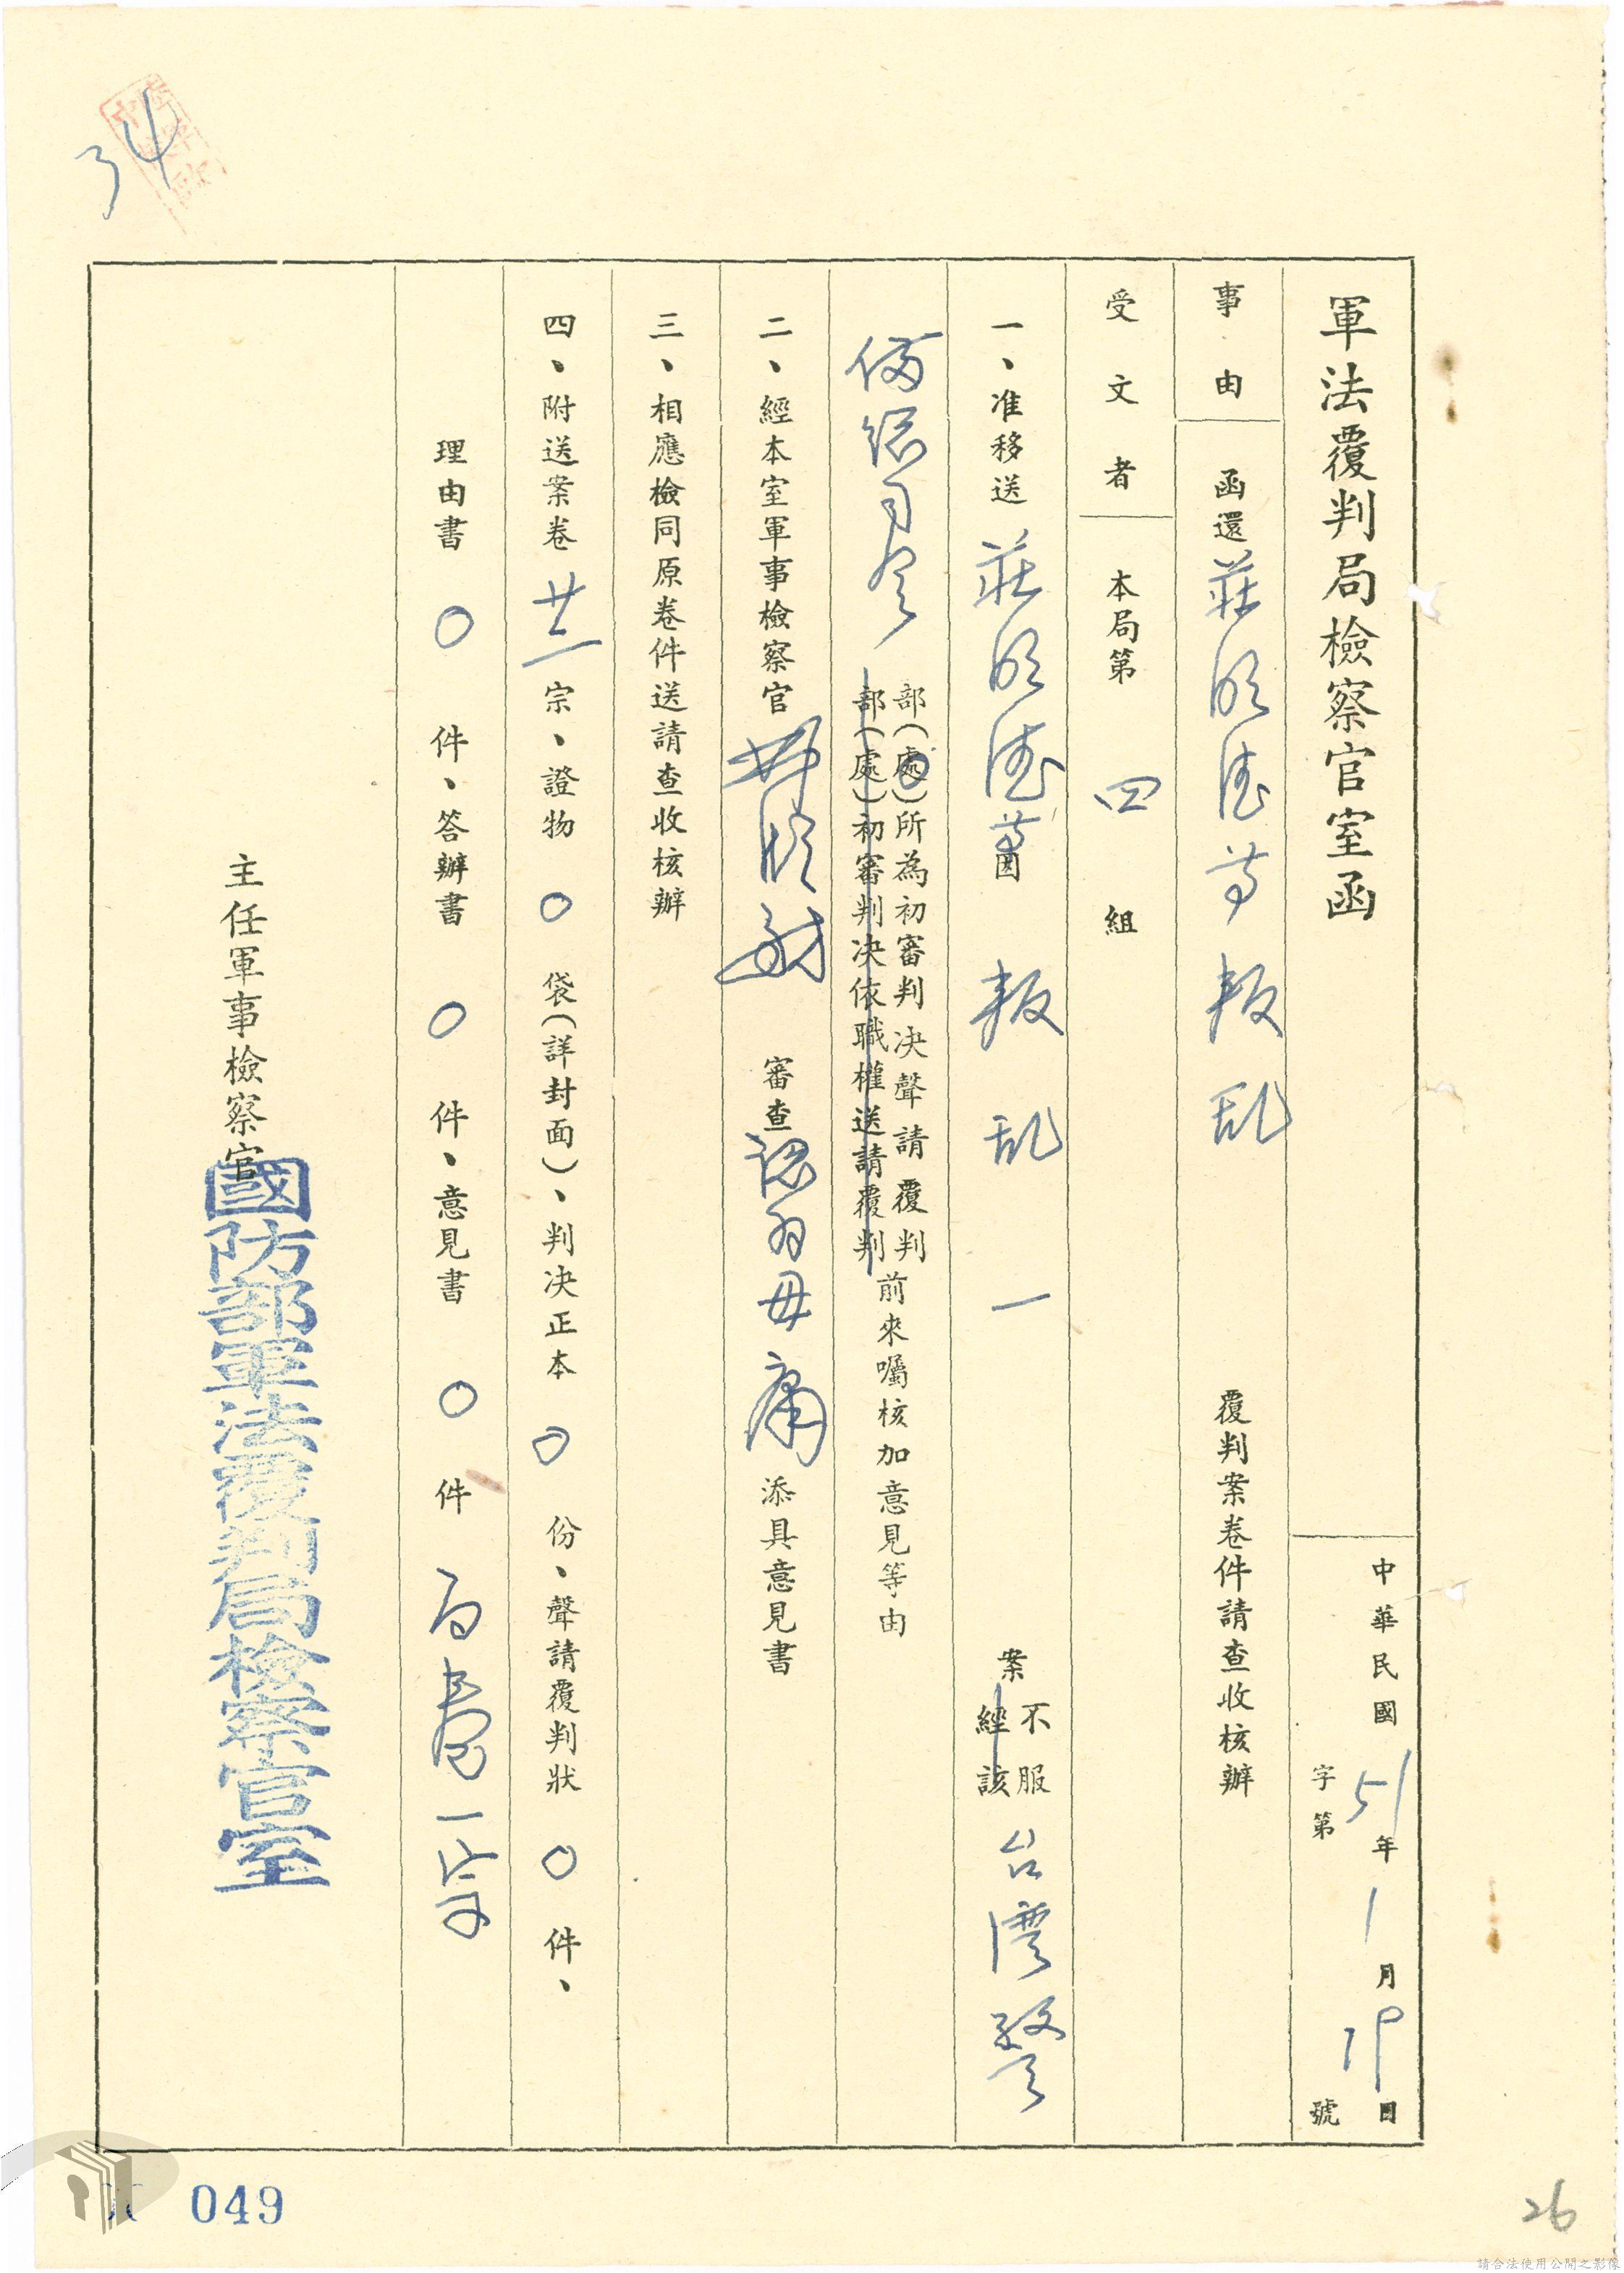 軍法覆判局檢察官室函
中華民國51年1月19日
字第 號
事由 函還莊 等叛乱 覆判案卷件請查收核辦
受文者 本局第四組
一、准移送莊 等因叛乱一案不服台灣警
經該
備總司令部(處)所為初審判決聲請覆判前來囑核加意見等由
部(處)初審判決依職權送請覆判
二、經本室軍事檢察官 審查認為毋庸添具意見書
三、相應檢同原卷件送請查收核辦
四、附送案卷 宗、證物〇袋(詳封面)、判決正本〇份、聲請覆判狀〇件、
理由書〇件、答辦書〇件、意見書〇件 一
主任軍事檢察官
國防部軍法覆判局檢察官室
34
049
26
請合法使用公開之影像